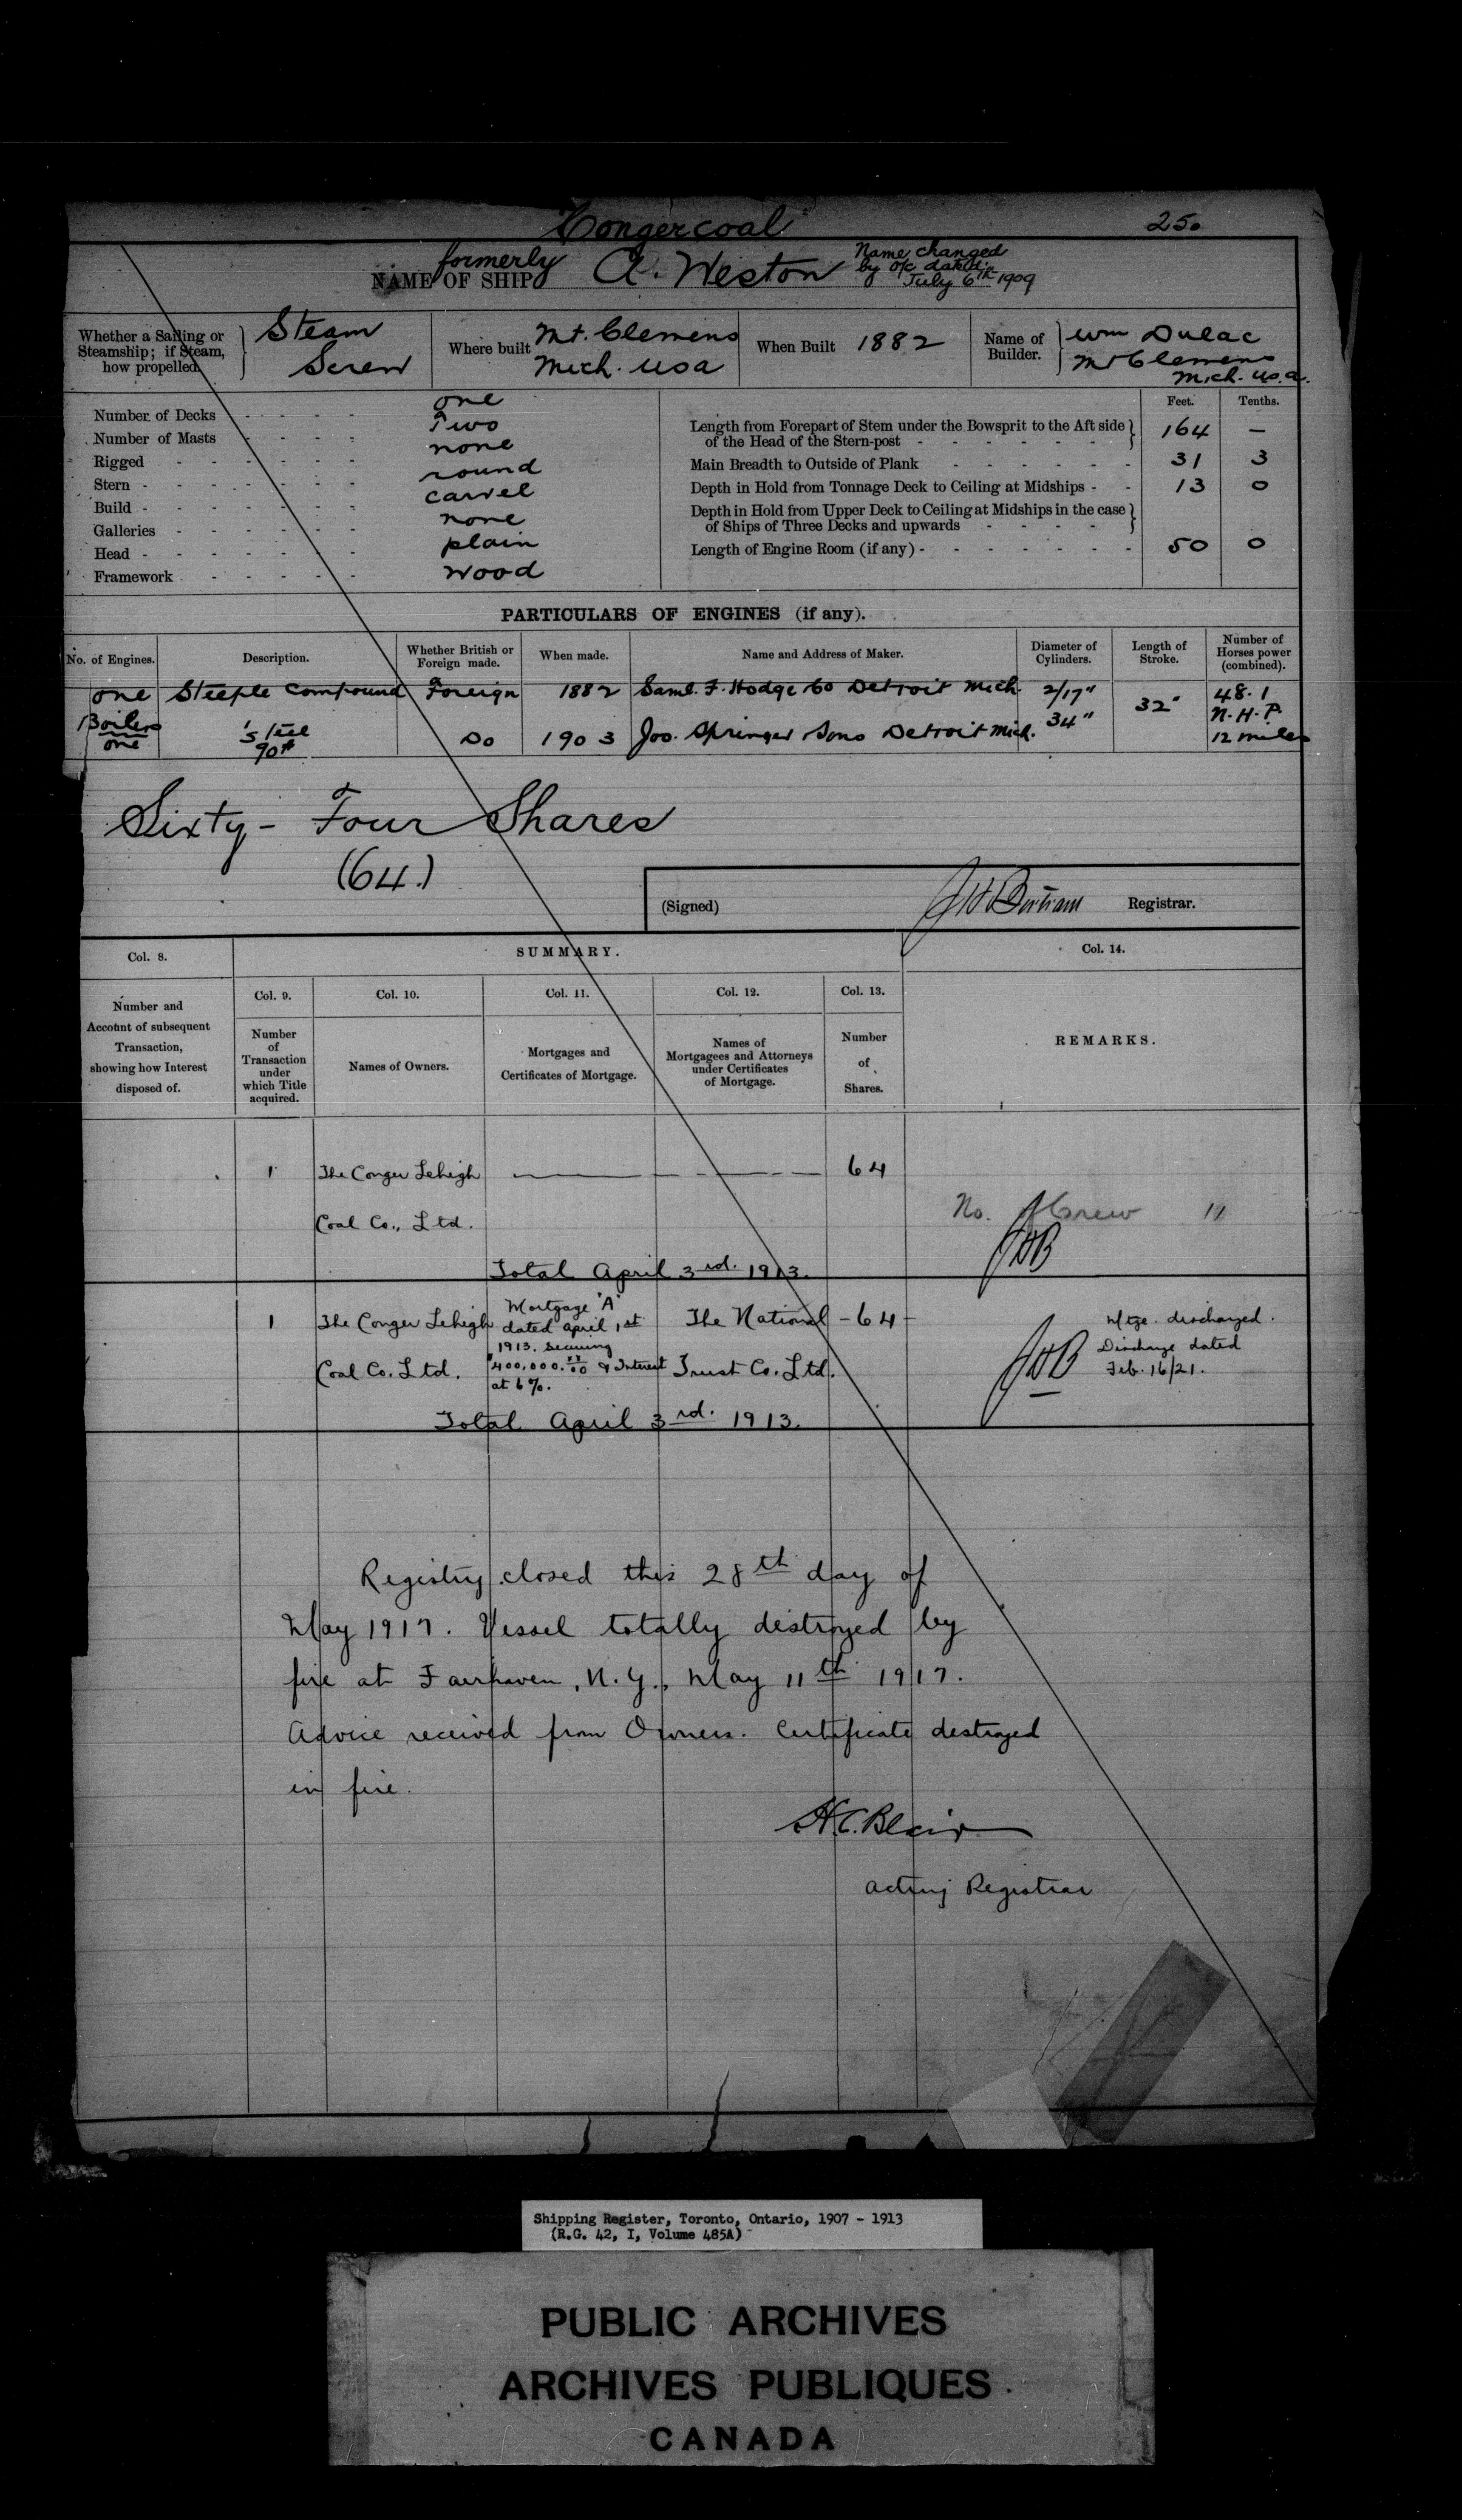 Congercoal 250
formerly
NAME OF SHIP A. Weston Name changed
by o/c dated
July 6th 1909
Whether a Sailing or
Steamship; if Steam,
how propelled. Steam
Screw
Where built Mt. Clemens
Mich. USA
When Built 1882
Name of
Builder. Wm Dulac
Mt Clemens
Mich. U.S.A.
Feet. Tenths.
Number of Decks - - - - one
Number of Masts - - - - Two
Rigged - - - - - - none
Stern - - - - - - round
Build - - - - - - carvel
Galleries - - - - - none
Head - - - - - - plain
Framework - - - - - wood
Length from Forepart of Stem under the Bowsprit to the Aft side
of the Head of the Stern-post - - - - - - 164 —
Main Breadth to Outside of Plank - - - - - - 31 3
Depth in Hold from Tonnage Deck to Ceiling at Midships - - 13 0
Depth in Hold from Upper Deck to Ceiling at Midships in the case
of Ships of Three Decks and upwards - - - -
Length of Engine Room (if any) - - - - - - - 50 0
PARTICULARS OF ENGINES (if any).
No. of Engines. Description. Whether British or
Foreign made. When made. Name and Address of Maker. Diameter of
Cylinders. Length of
Stroke. Number of
Horses power
(combined).
one Steeple Compound Foreign 1882 Saml. F. Hodge Co Detroit Mich. 2/17" 34" 32" 48.1
N.H.P.
12 miles
Boilers
one Steel
90# Do 1903 Jos. Springer Sons Detroit Mich.
Sixty-Four Shares
(64.)
(Signed) J H Bertram Registrar.
Col. 8. SUMMARY. Col. 14.
Col. 9. Col. 10. Col. 11. Col. 12. Col. 13.
Number and
Account of subsequent
Transaction,
showing how Interest
disposed of.
Number
of
Transaction
under
which Title
acquired.
Names of Owners.
Mortgages and
Certificates of Mortgage.
Names of
Mortgagees and Attorneys
under Certificates
of Mortgage.
Number
of
Shares.
REMARKS.
1 The Conger Lehigh 64
Coal Co., Ltd.
No. of Crew 11
JHB
Total April 3rd. 1913.
1 The Conger Lehigh
Coal Co. Ltd.
Mortgage "A"
dated April 1st
1913. Securing
$400,000.xx/00 & Interest
at 6%.
The National
Trust Co. Ltd.
-64-
JHB
Mtge. discharged.
Discharge dated
Feb. 16/21.
Total April 3rd. 1913.
Registry closed this 28th day of
May 1917. Vessel totally destroyed by
fire at Fairhaven, N.Y., May 11th 1917.
Advice received from Owners. Certificate destroyed
in fire.
H.C. Blair
Acting Registrar
Shipping Register, Toronto, Ontario, 1907 - 1913
(R.G. 42, I, Volume 485A)
PUBLIC ARCHIVES
ARCHIVES PUBLIQUES
CANADA